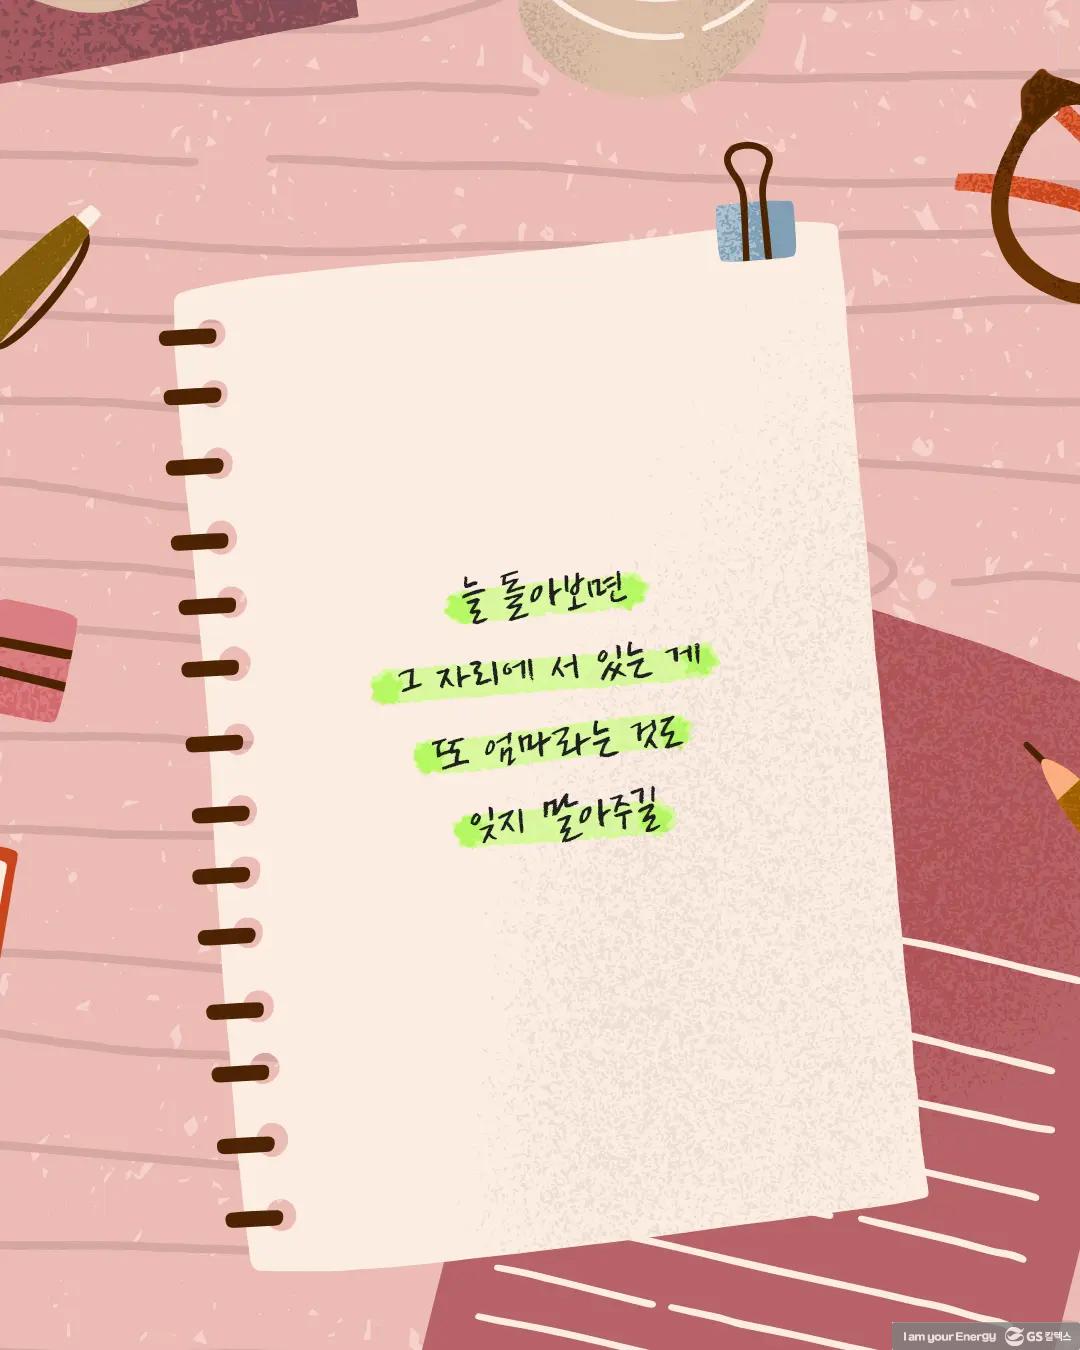 늘 돌아보면
그 자리에 서 있는 게
또 엄마라는 것도
잊지 말아주길
I am your Energy GS칼텍스